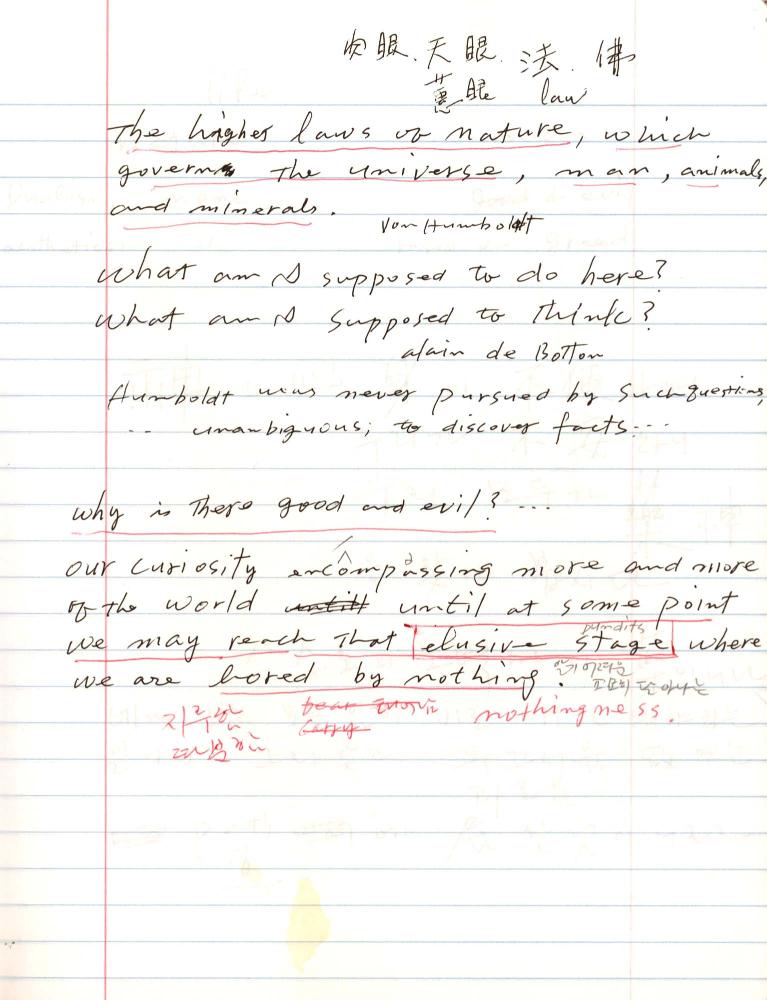 肉眼. 天眼. 法. 佛
慧眼 law
The higher laws of nature, which
govern the universe, man, animals,
and minerals.
Von Humboldt
What am I supposed to do here?
What am I supposed to think?
alain de Botton
Humboldt was never pursued by such questions,
.. unambiguous; to discover facts...
why is there good and evil? ...
our curiosity encompassing more and more
of the world untill until at some point
pundits
we may reach that elusive stage where
we are bored by nothing.
알기 어려운
지루한 bear carry nothingness.
따분한